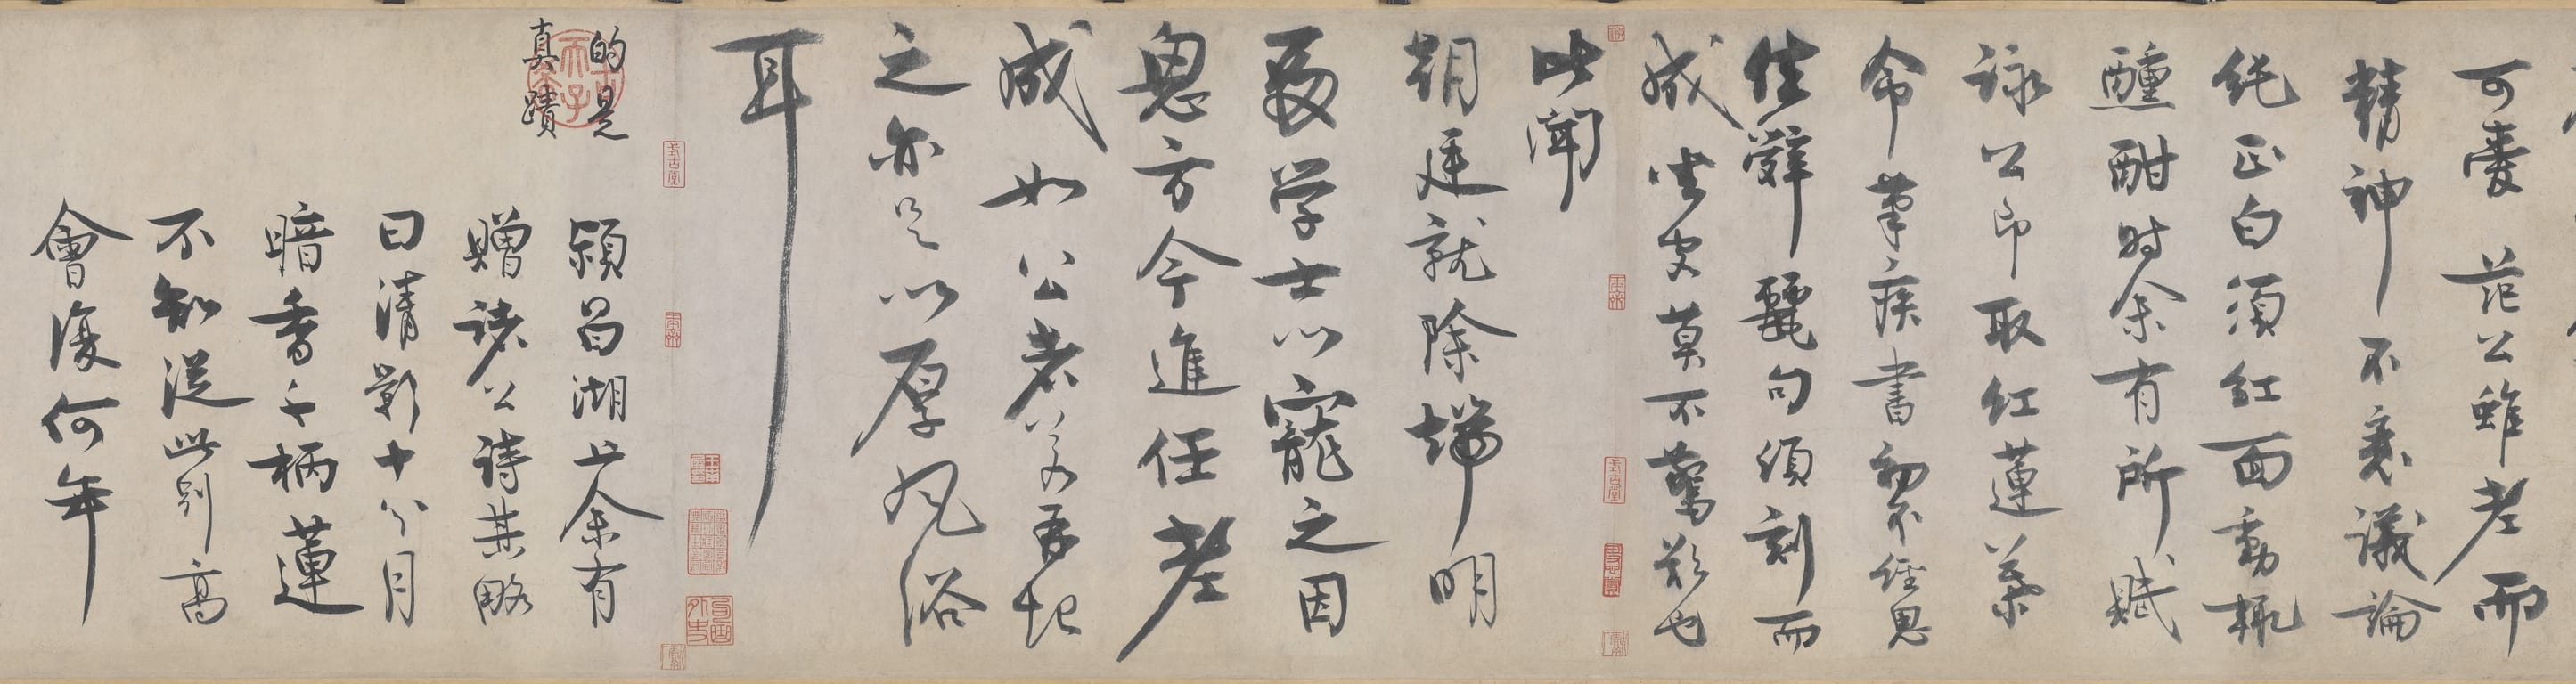 可愛 范公雖老而
精神不衰議論
純正白須紅面動輒
醺酣时余有所賦
詠公即取紅蓮葉
命筆疾書初不經思
佳辭麗句須刻而
成坐客莫不驚歎也
比聞
朝廷就除端明
殿学士以寵之因
思方今進任老
成如公者起
之亦足以厚风俗
耳
的是
真蹟
潁昌湖上余有
贈諸公詩其略
曰清影十分月
暗香千柄蓮
不知從此別高
會復何年
式古堂
式古堂